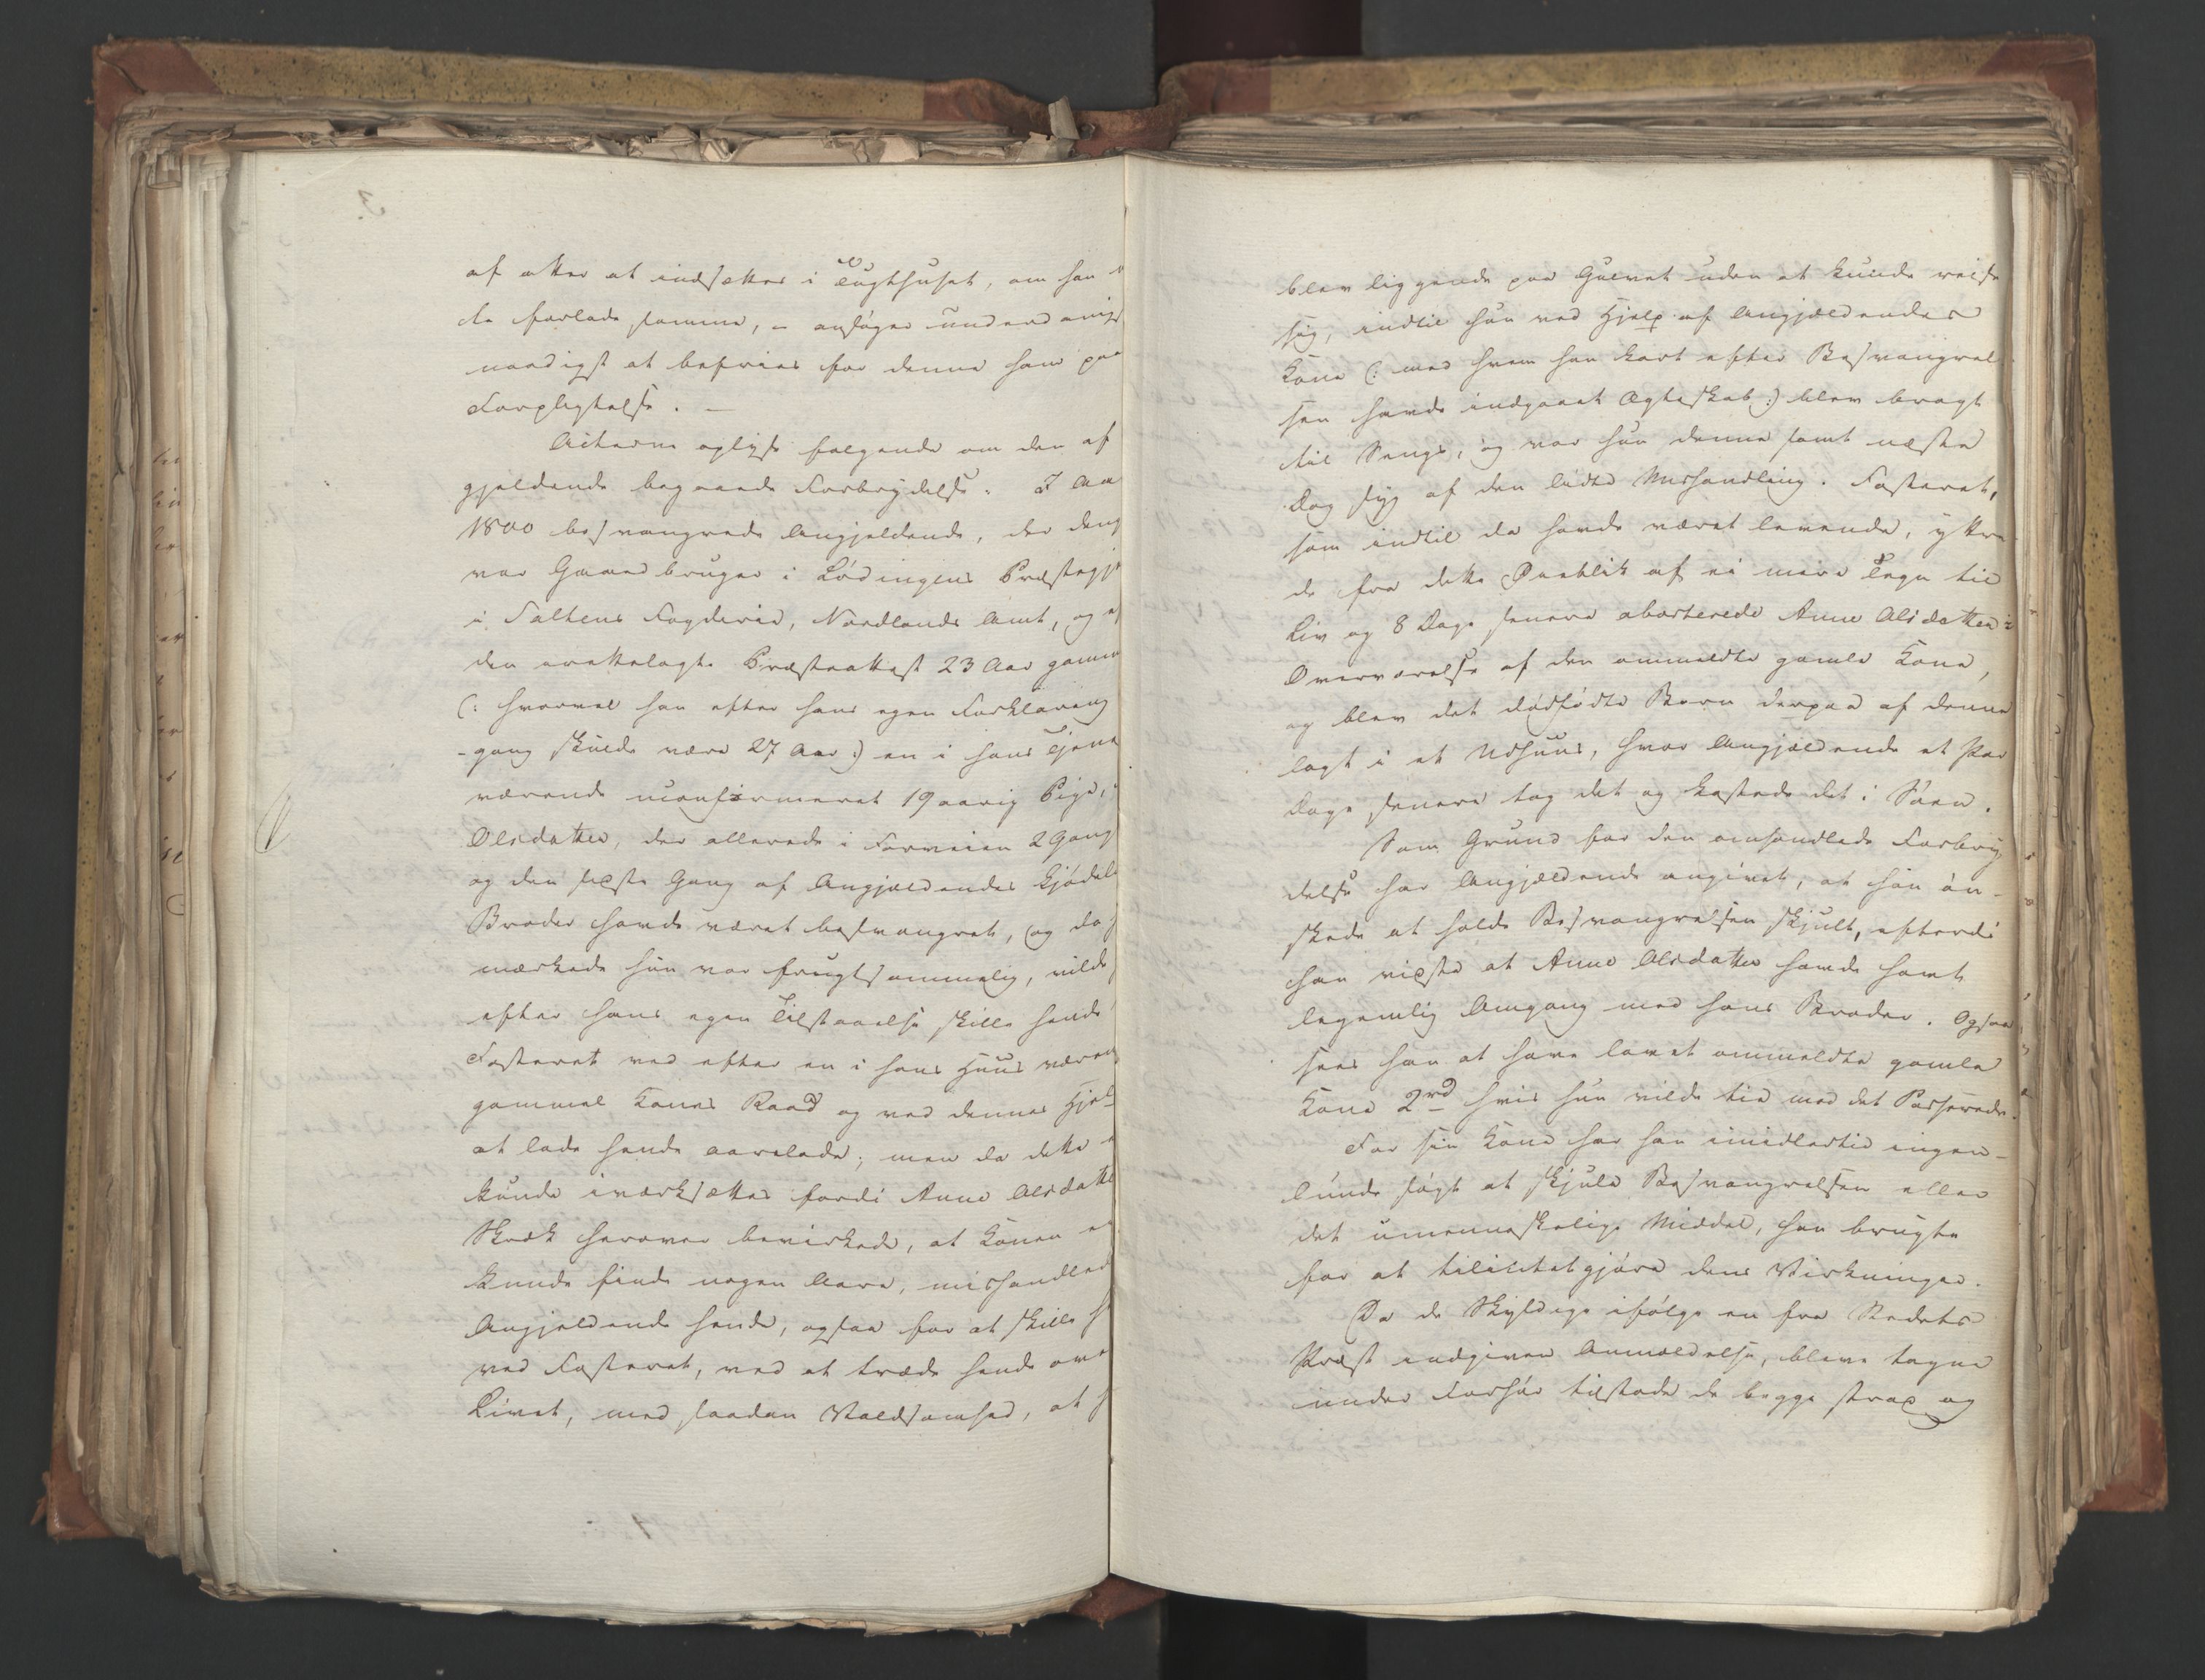 af atter at indsættes i Tugthuset, om han
da forlade samme, – ansøger underdanigst
naadigst at befries for denne ham paa
Forpligtelse. –
Acterne oplyse følgende om den af
gjeldende begaaede Forbrydelse. I Aa
1800 besvangrede Angjeldende, der deng
var Gaardbruger i Lødingens Præstegje
i Saltens Fogderie, Nordlands Amt, og ef
den erettelagte Præsteattest 23 Aar gamm
(: hvorvel han efter hans egen Forklaring
-gang skulde være 27 Aar :) en i hans Tjene
værende uconfirmeret 19 aarig Pige,
Olsdatter, der allerede i Forveien 2 Gang
og den sidste Gang af Angjældendes kjødel
Broder havde været besvangret, og da
mærkede hun var frugtsommelig, vilde
efter hans egen Tilstaaelse skille hende
Fosteret ved efter en i hans Huus væren
gammel Kones Raad og ved dennes Hjel-
at lade hende aarelade; men da dette
kunde iværksættes fordi Anne Olsdatte
Skræk herover bevirkede, at Konen ei
kunde finde nogen Aare, mishandlede
Angjeldende hende, ogsaa for at skille h
ved Fosteret, ved at træde hende over
Livet, med saadan Voldsomhed, at h
blev liggende paa Gulvet uden at kunde reise
sig, indtil hun ved Hjelp af Angjældendes
Kone (: med hvem han kort efter Besvangrel
sen havde indgaaet Ægteskab :) blev bragt
til Sengs, og var hun denne samt næste
Dag syg af den lidte Mishandling. Fosteret,
som indtil da havde været levende, yttre-
de fra dette Øieblik af ei mere Tegn til
Liv og 8 Dage senere aborterede Anne Olsdatter i
Overværelse af den ommeldte gamle Kone,
og blev det dødfødte Barn derpaa af denne
lagt i et Udhuus, hvor Angjældende et Par
Dage senere tog det og kastede det i Søen.
Som Grund for den omhandlede Forbry
delse har Angjældende angivet, at han øn-
skede at holde Besvangrelsen skjult, efterdi
han vidste at Anne Olsdatter havde havt
legemlig Omgang med hans Broder. Ogsaa
sees han at have lovet ommeldte gamle
Kone 2 rd hvis hun vilde tie med det Passerede.
For sin Kone har han imidlertid ingen-
lunde søgt at skjule Besvangrelsen eller
det umenneskelige Middel, han brugte
for at tilintetgjøre dens Virkninger.
Da de Skyldige ifølge en fra Stedets
Præst indgiven Anmældelse, bleve tagne
under Forhør tilstode de begge strax og